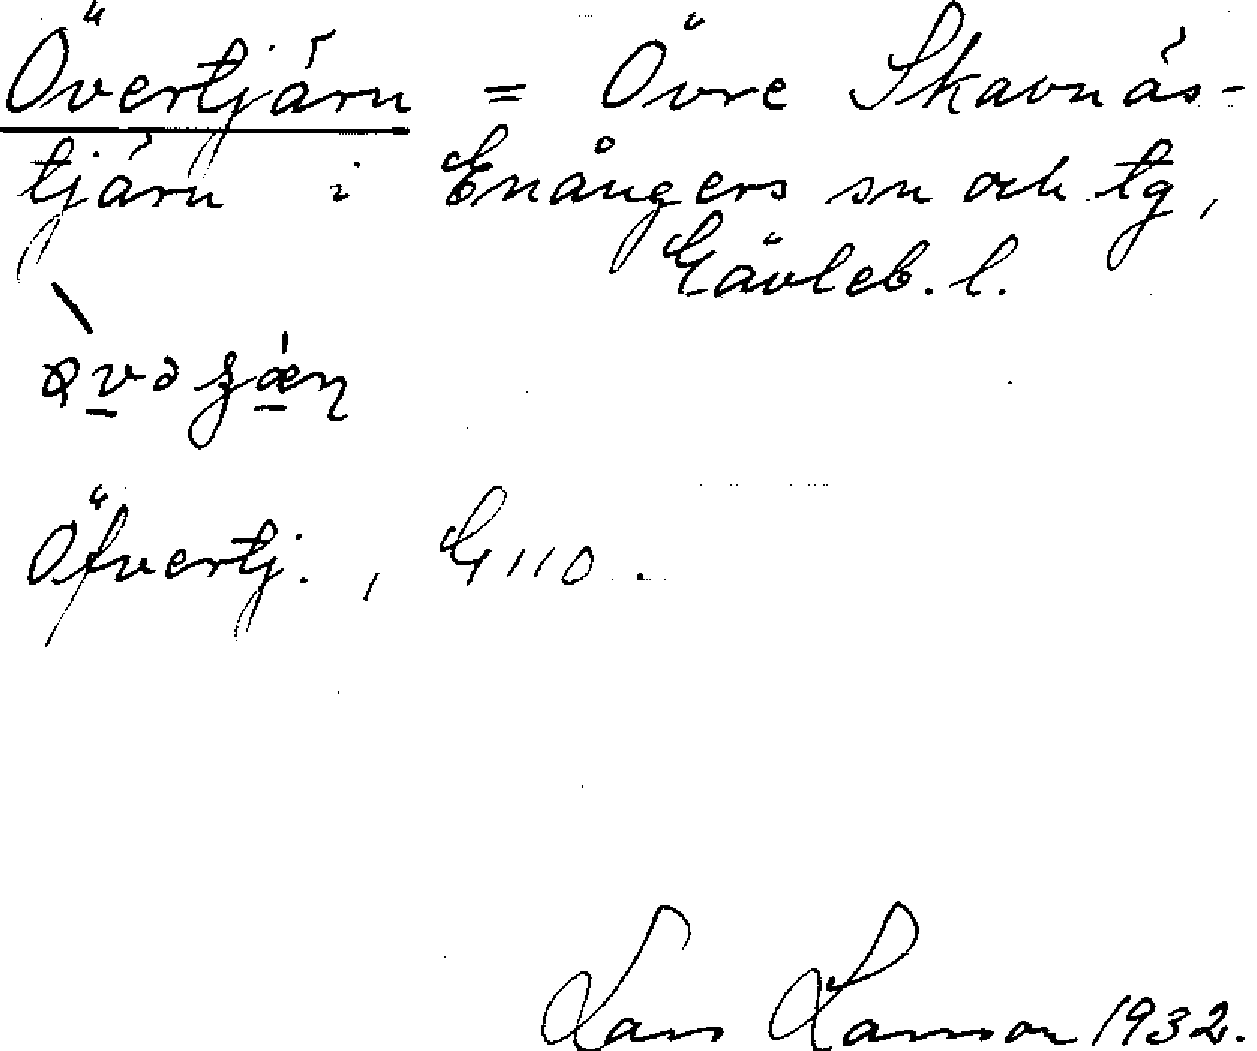 Övertjärn = Övre Skavnäs-
tjärn i Enångers sn och tg,
Gävleb. l.
Öfvertj. , G 110.
Lars Larsson 1932.